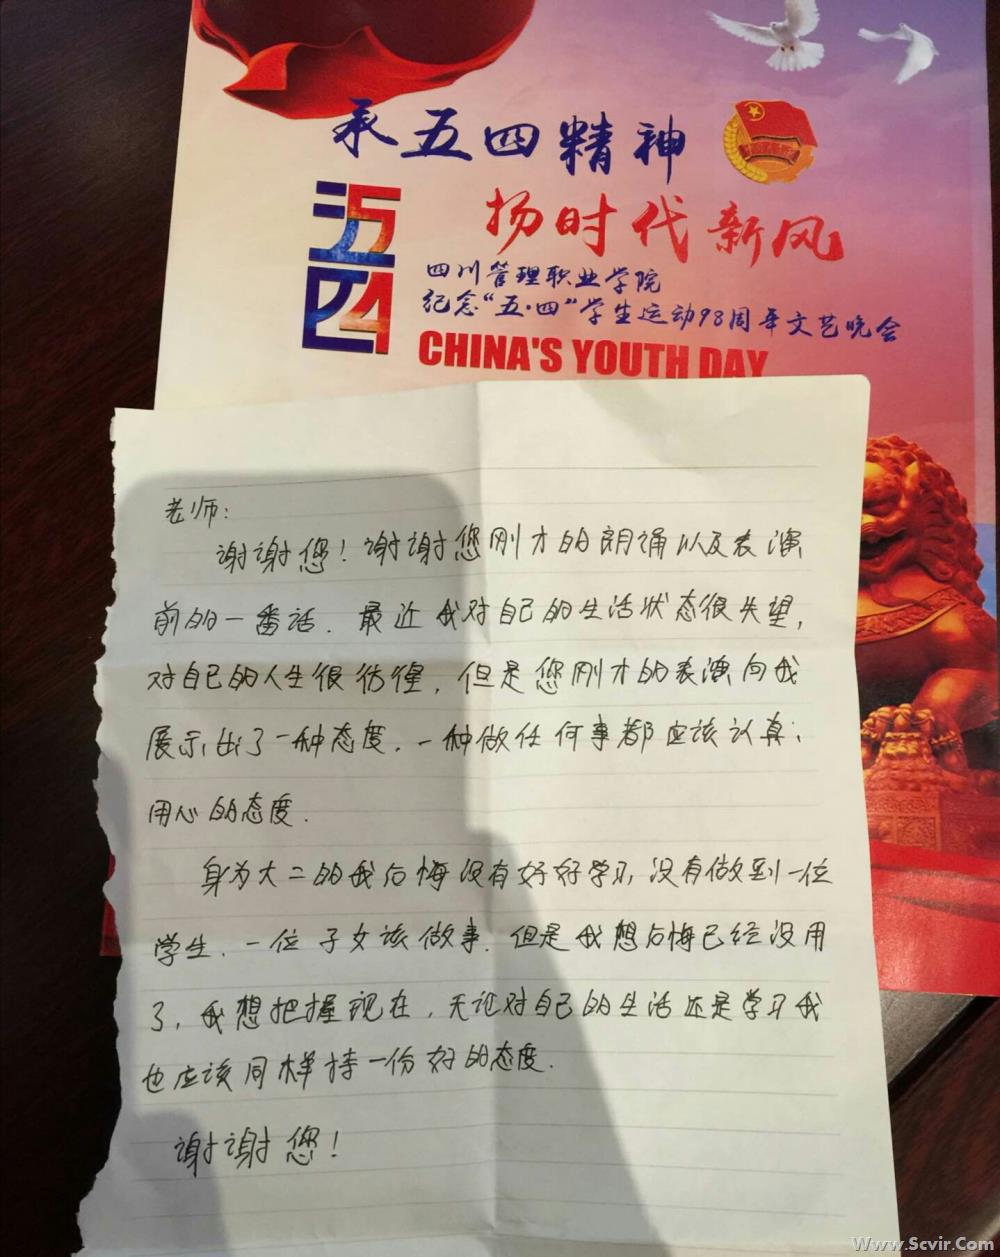 承五四精神
五四
扬时代新风
四川管理职业学院
纪念“五·四”学生运动98周年文艺晚会
CHINA'S YOUTH DAY
老师:
谢谢您!谢谢您刚才的朗诵以及表演
前的一番话.最近我对自己的生活状态很失望,
对自己的人生很彷徨,但是您刚才的表演向我
展示出了一种态度.一种做任何事都应该认真、
用心的态度.
身为大二的我后悔没有好好学习,没有做到一位
学生、一位子女该做事.但是我想后悔已经没用
了,我想把握现在,无论对自己的生活还是学习我
也应该同样持一份好的态度.
谢谢您!
Www.Scvir.Com